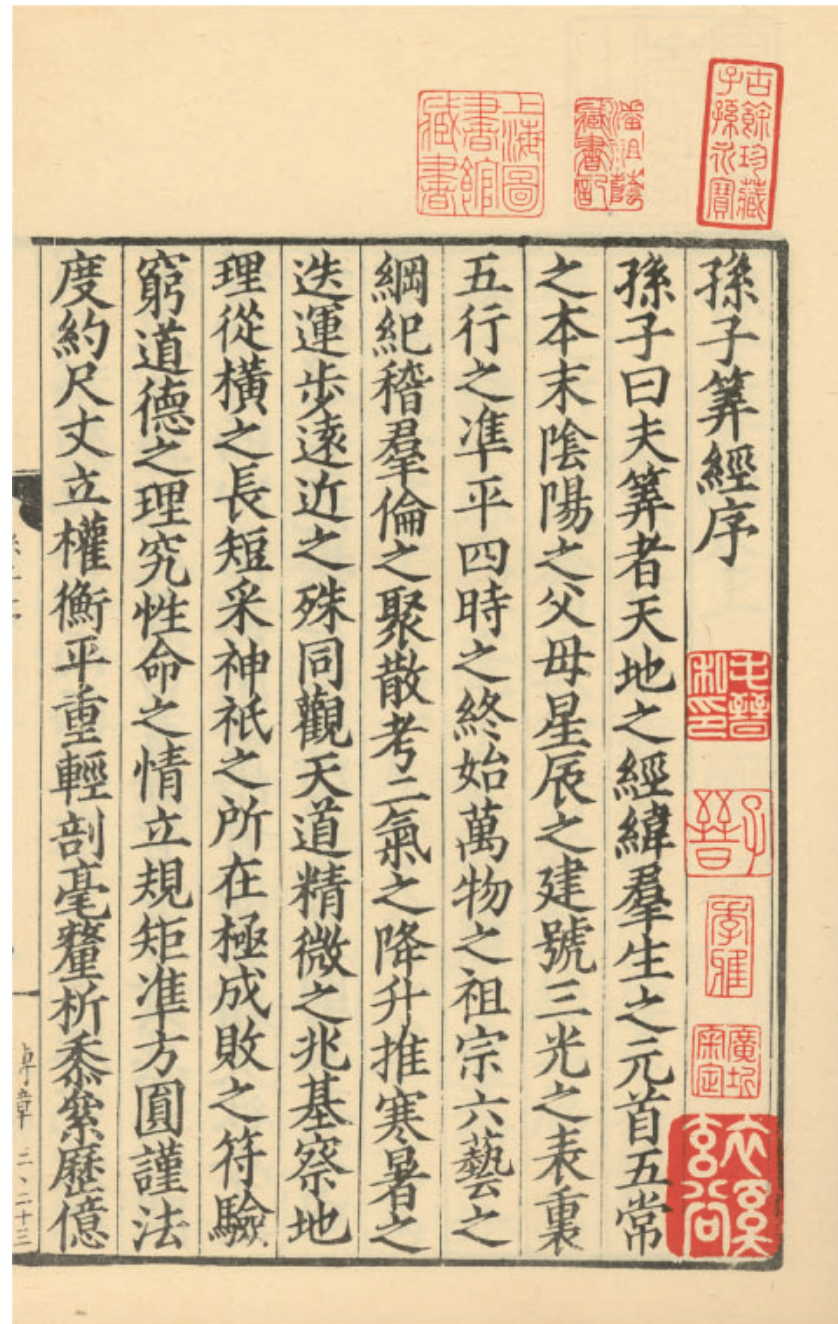 孫子筭經序
孫子曰夫筭者天地之經緯羣生之元首五常
之本末陰陽之父母星辰之建號三光之表裏
五行之準平四時之終始萬物之祖宗六藝之
綱紀稽羣倫之聚散考二氣之降升推寒暑之
迭運步遠近之殊同觀天道精微之兆基察地
理從橫之長短采神祇之所在極成敗之符驗
窮道德之理究性命之情立規矩準方圓謹法
度約尺丈立權衡平重輕剖毫釐析黍絫歷億
古餘珍藏子孫永寶
潘祖蔭藏書記
上海圖書館藏書
毛晉私印
子晉